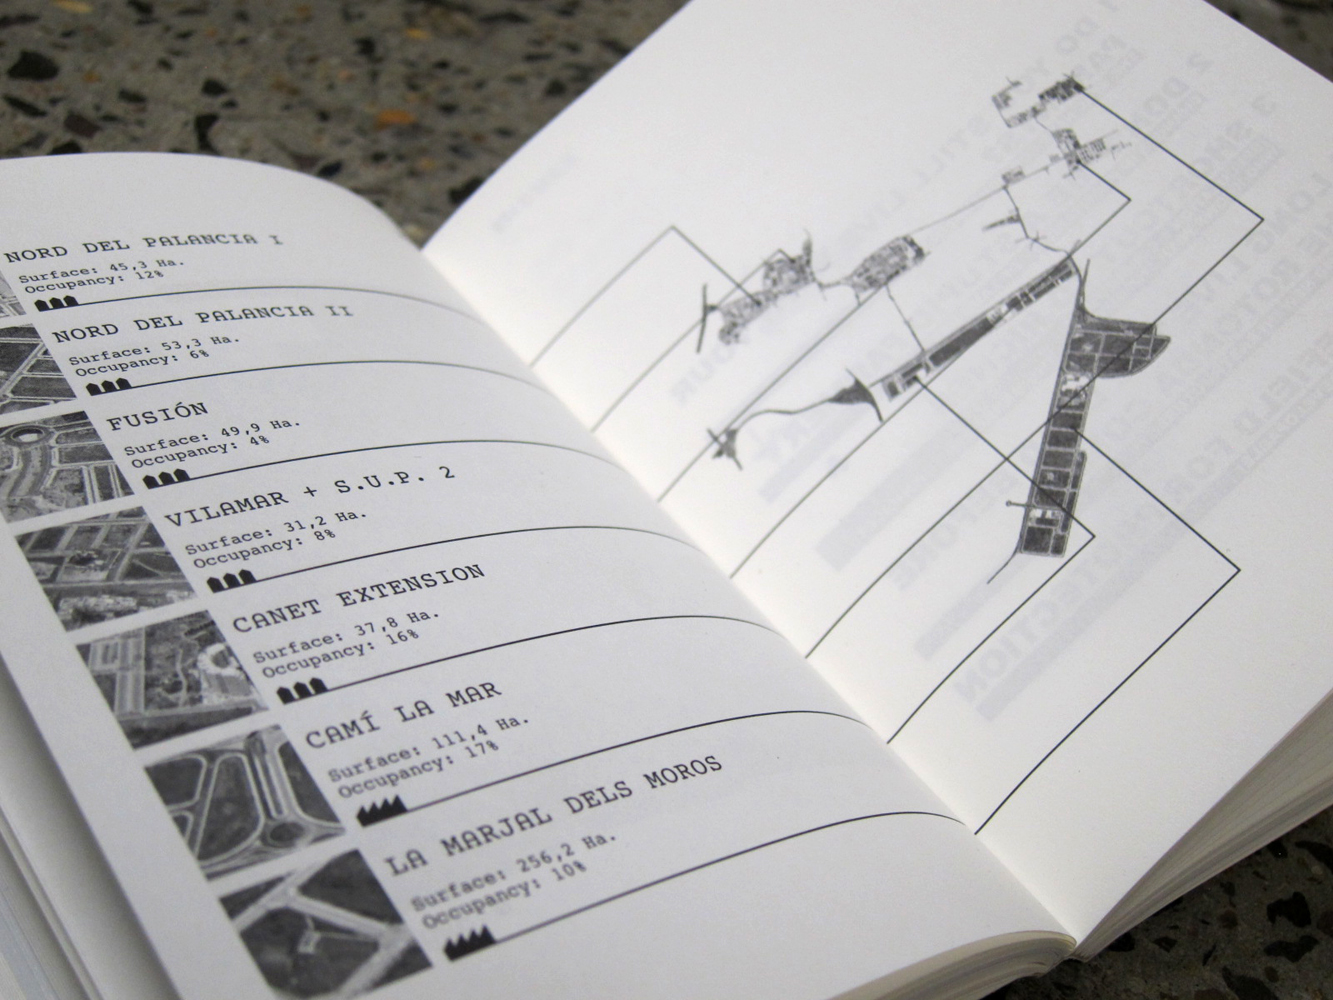 NORD DEL PALANCIA I
Surface: 45,3 Ha.
Occupancy: 12%
NORD DEL PALANCIA II
Surface: 53,3 Ha.
Occupancy: 6%
FUSIÓN
Surface: 49,9 Ha.
Occupancy: 4%
VILAMAR + S.U.P. 2
Surface: 31,2 Ha.
Occupancy: 8%
CANET EXTENSION
Surface: 37,8 Ha.
Occupancy: 16%
CAMÍ LA MAR
Surface: 111,4 Ha.
Occupancy: 17%
LA MARJAL DELS MOROS
Surface: 256,2 Ha.
Occupancy: 10%